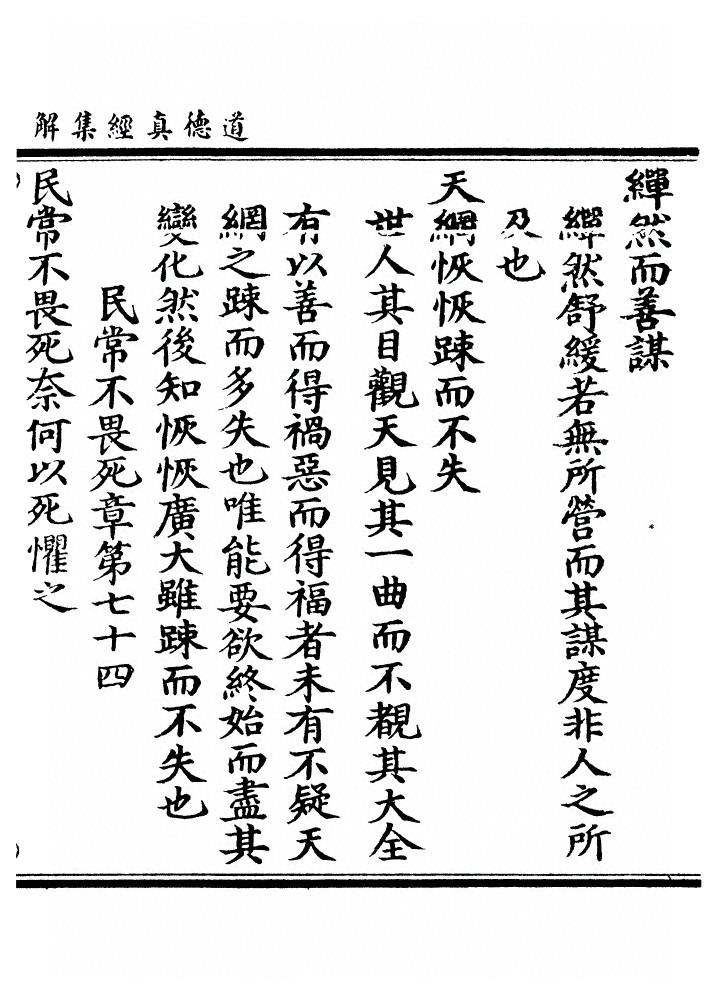 道德真經集解
繟然而善謀
繟然舒緩若無所營而其謀度非人之所
及也
天網恢恢踈而不失
世人其目觀天見其一曲而不覩其大全
有以善而得禍惡而得福者未有不疑天
網之踈而多失也唯能要欲終始而盡其
變化然後知恢恢廣大雖踈而不失也
民常不畏死章第七十四
民常不畏死奈何以死懼之